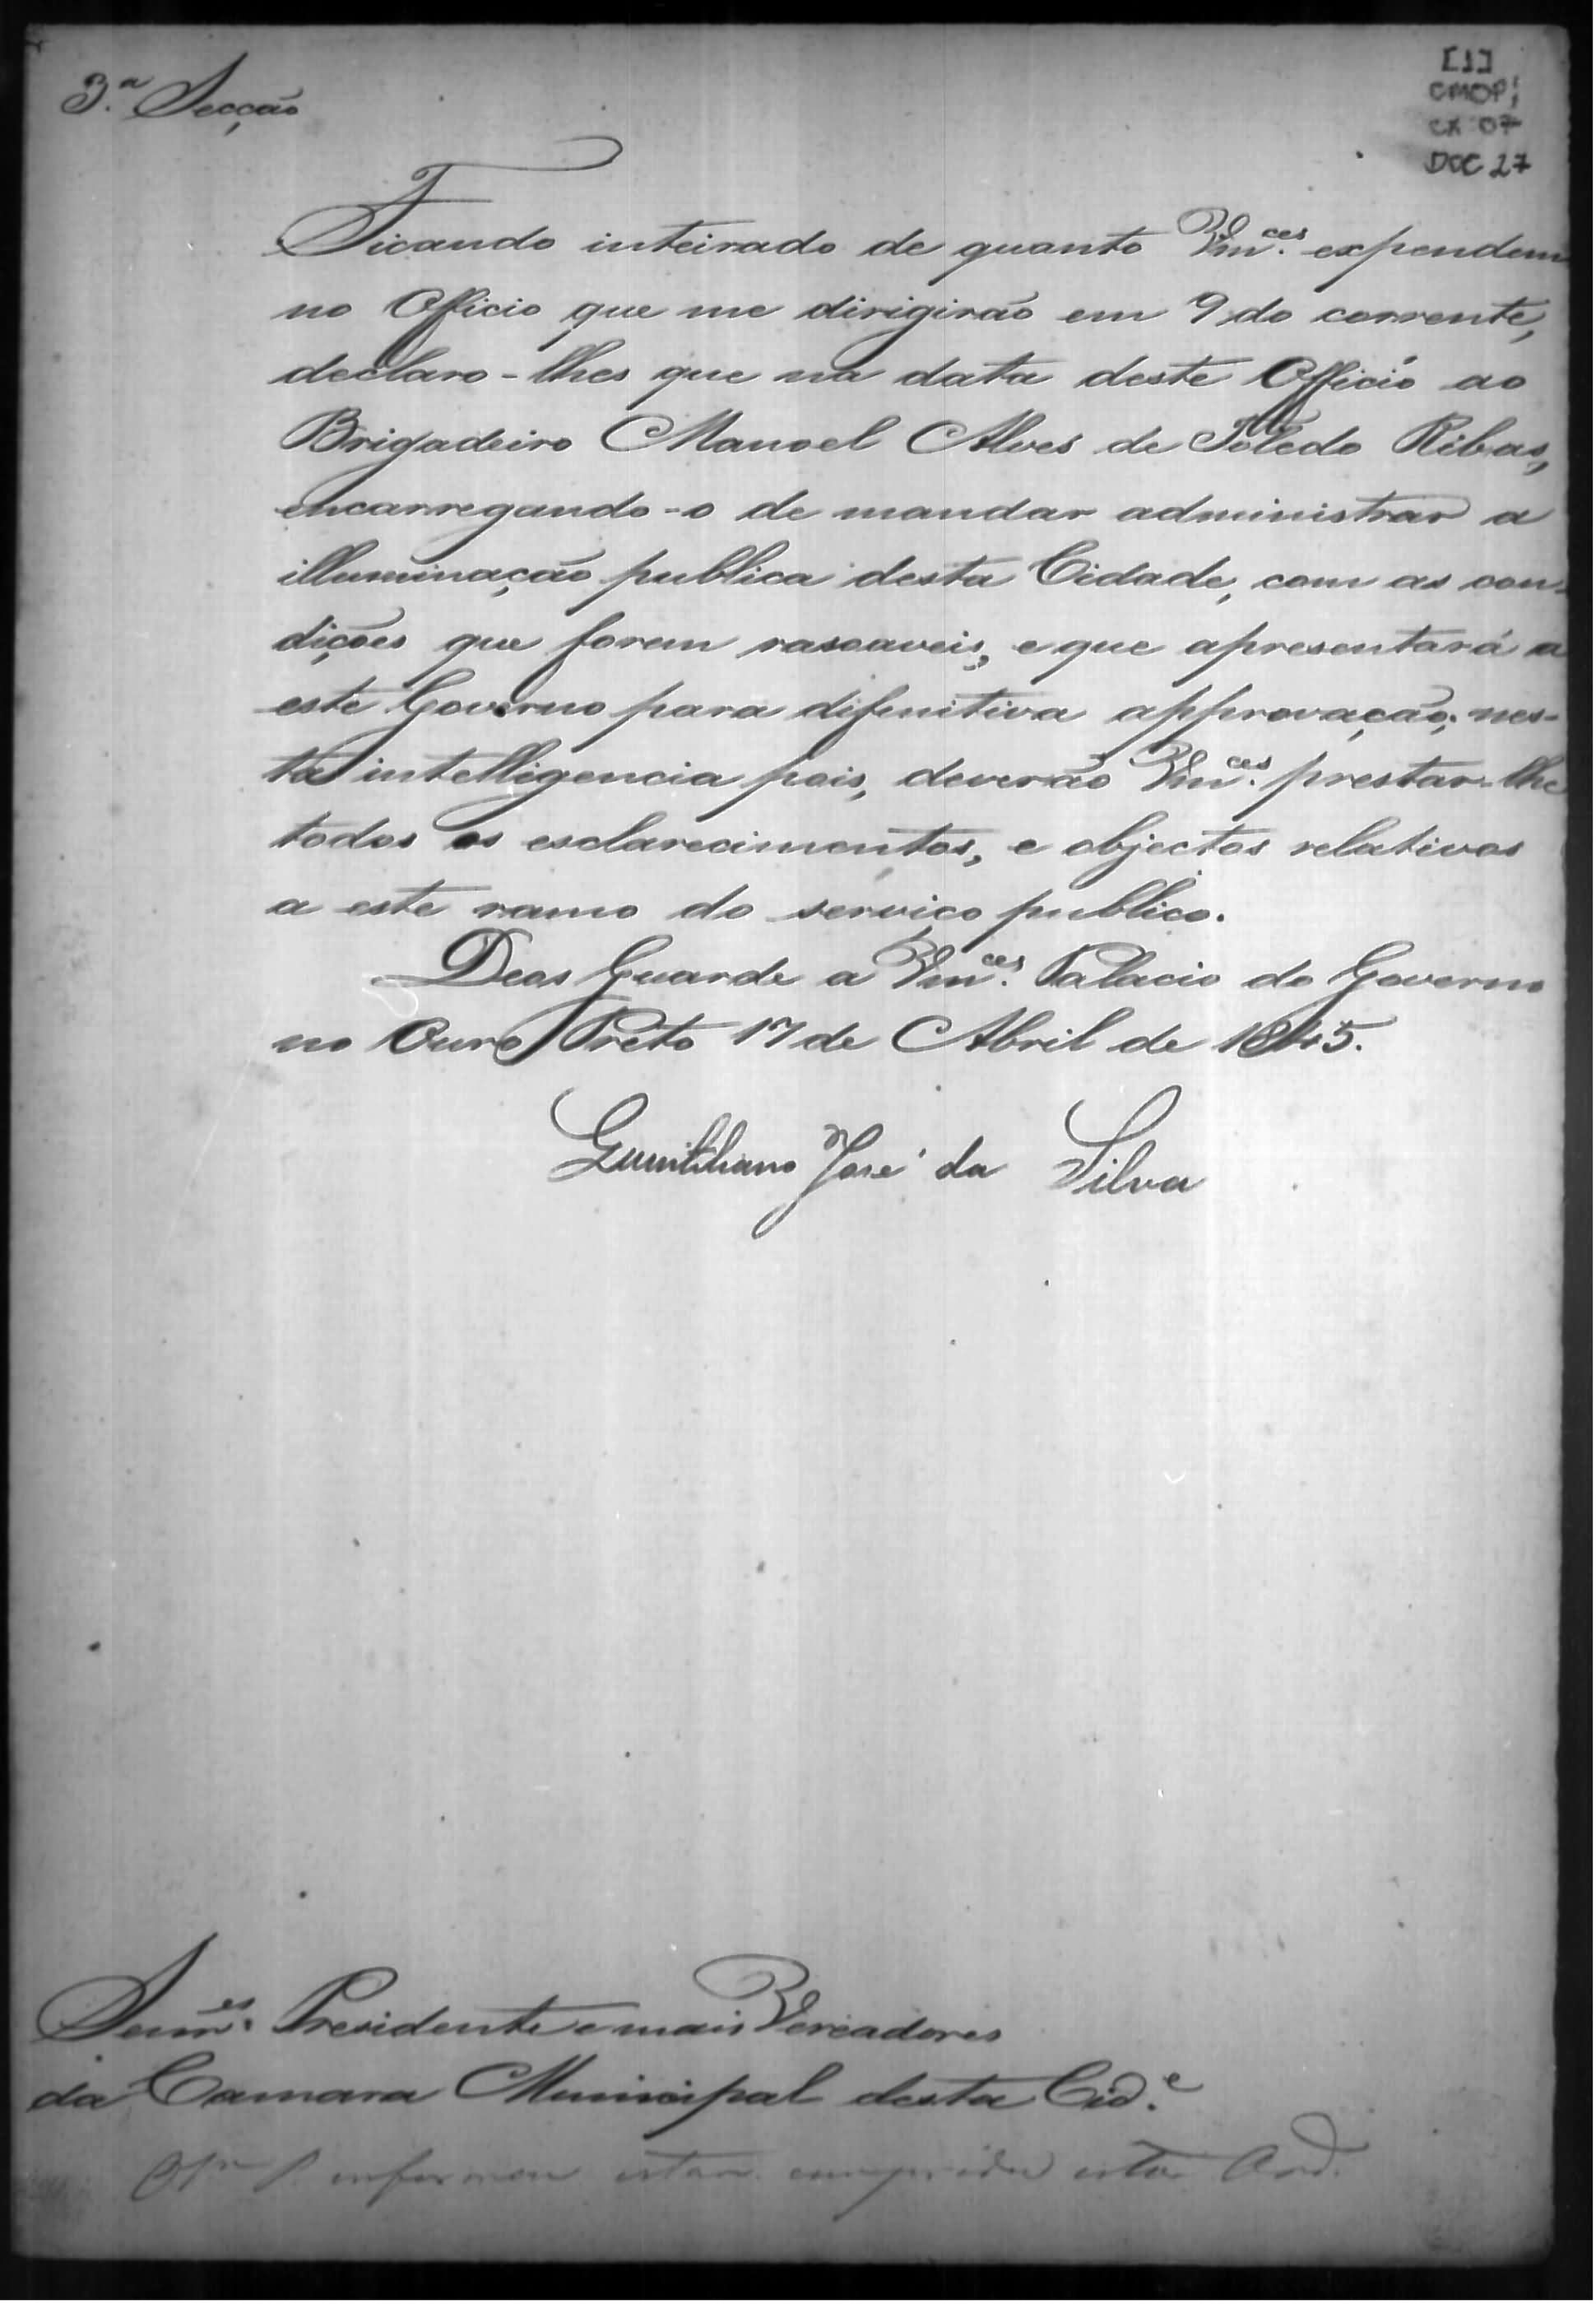 3.ª Secção
[1]
CMOP;
CX 07
DOC 27
Ficando inteirado de quanto Vm.ces expendem
no Officio que me dirigirão em 9 do corrente,
declaro-lhes que na data deste Officio ao
Brigadeiro Manoel Alves de Toledo Ribas,
encarregando-o de mandar administrar a
illuminação publica desta Cidade, com as con-
dições que forem rasoaveis, e que apresentará a
este Governo para difinitiva approvação; nes-
ta intelligencia pois, deverão Vm.ces prestar-lhe
todos os esclarecimentos, e objectos relativos
a este ramo do serviço publico.
Deos Guarde a Vm.ces Palacio do Governo
no Ouro Preto 17 de Abril de 1845.
José da Silva
Senr.es Presidente e mais Vereadores
da Camara Municipal desta Cid.e
informou estar cumprida esta Ord.